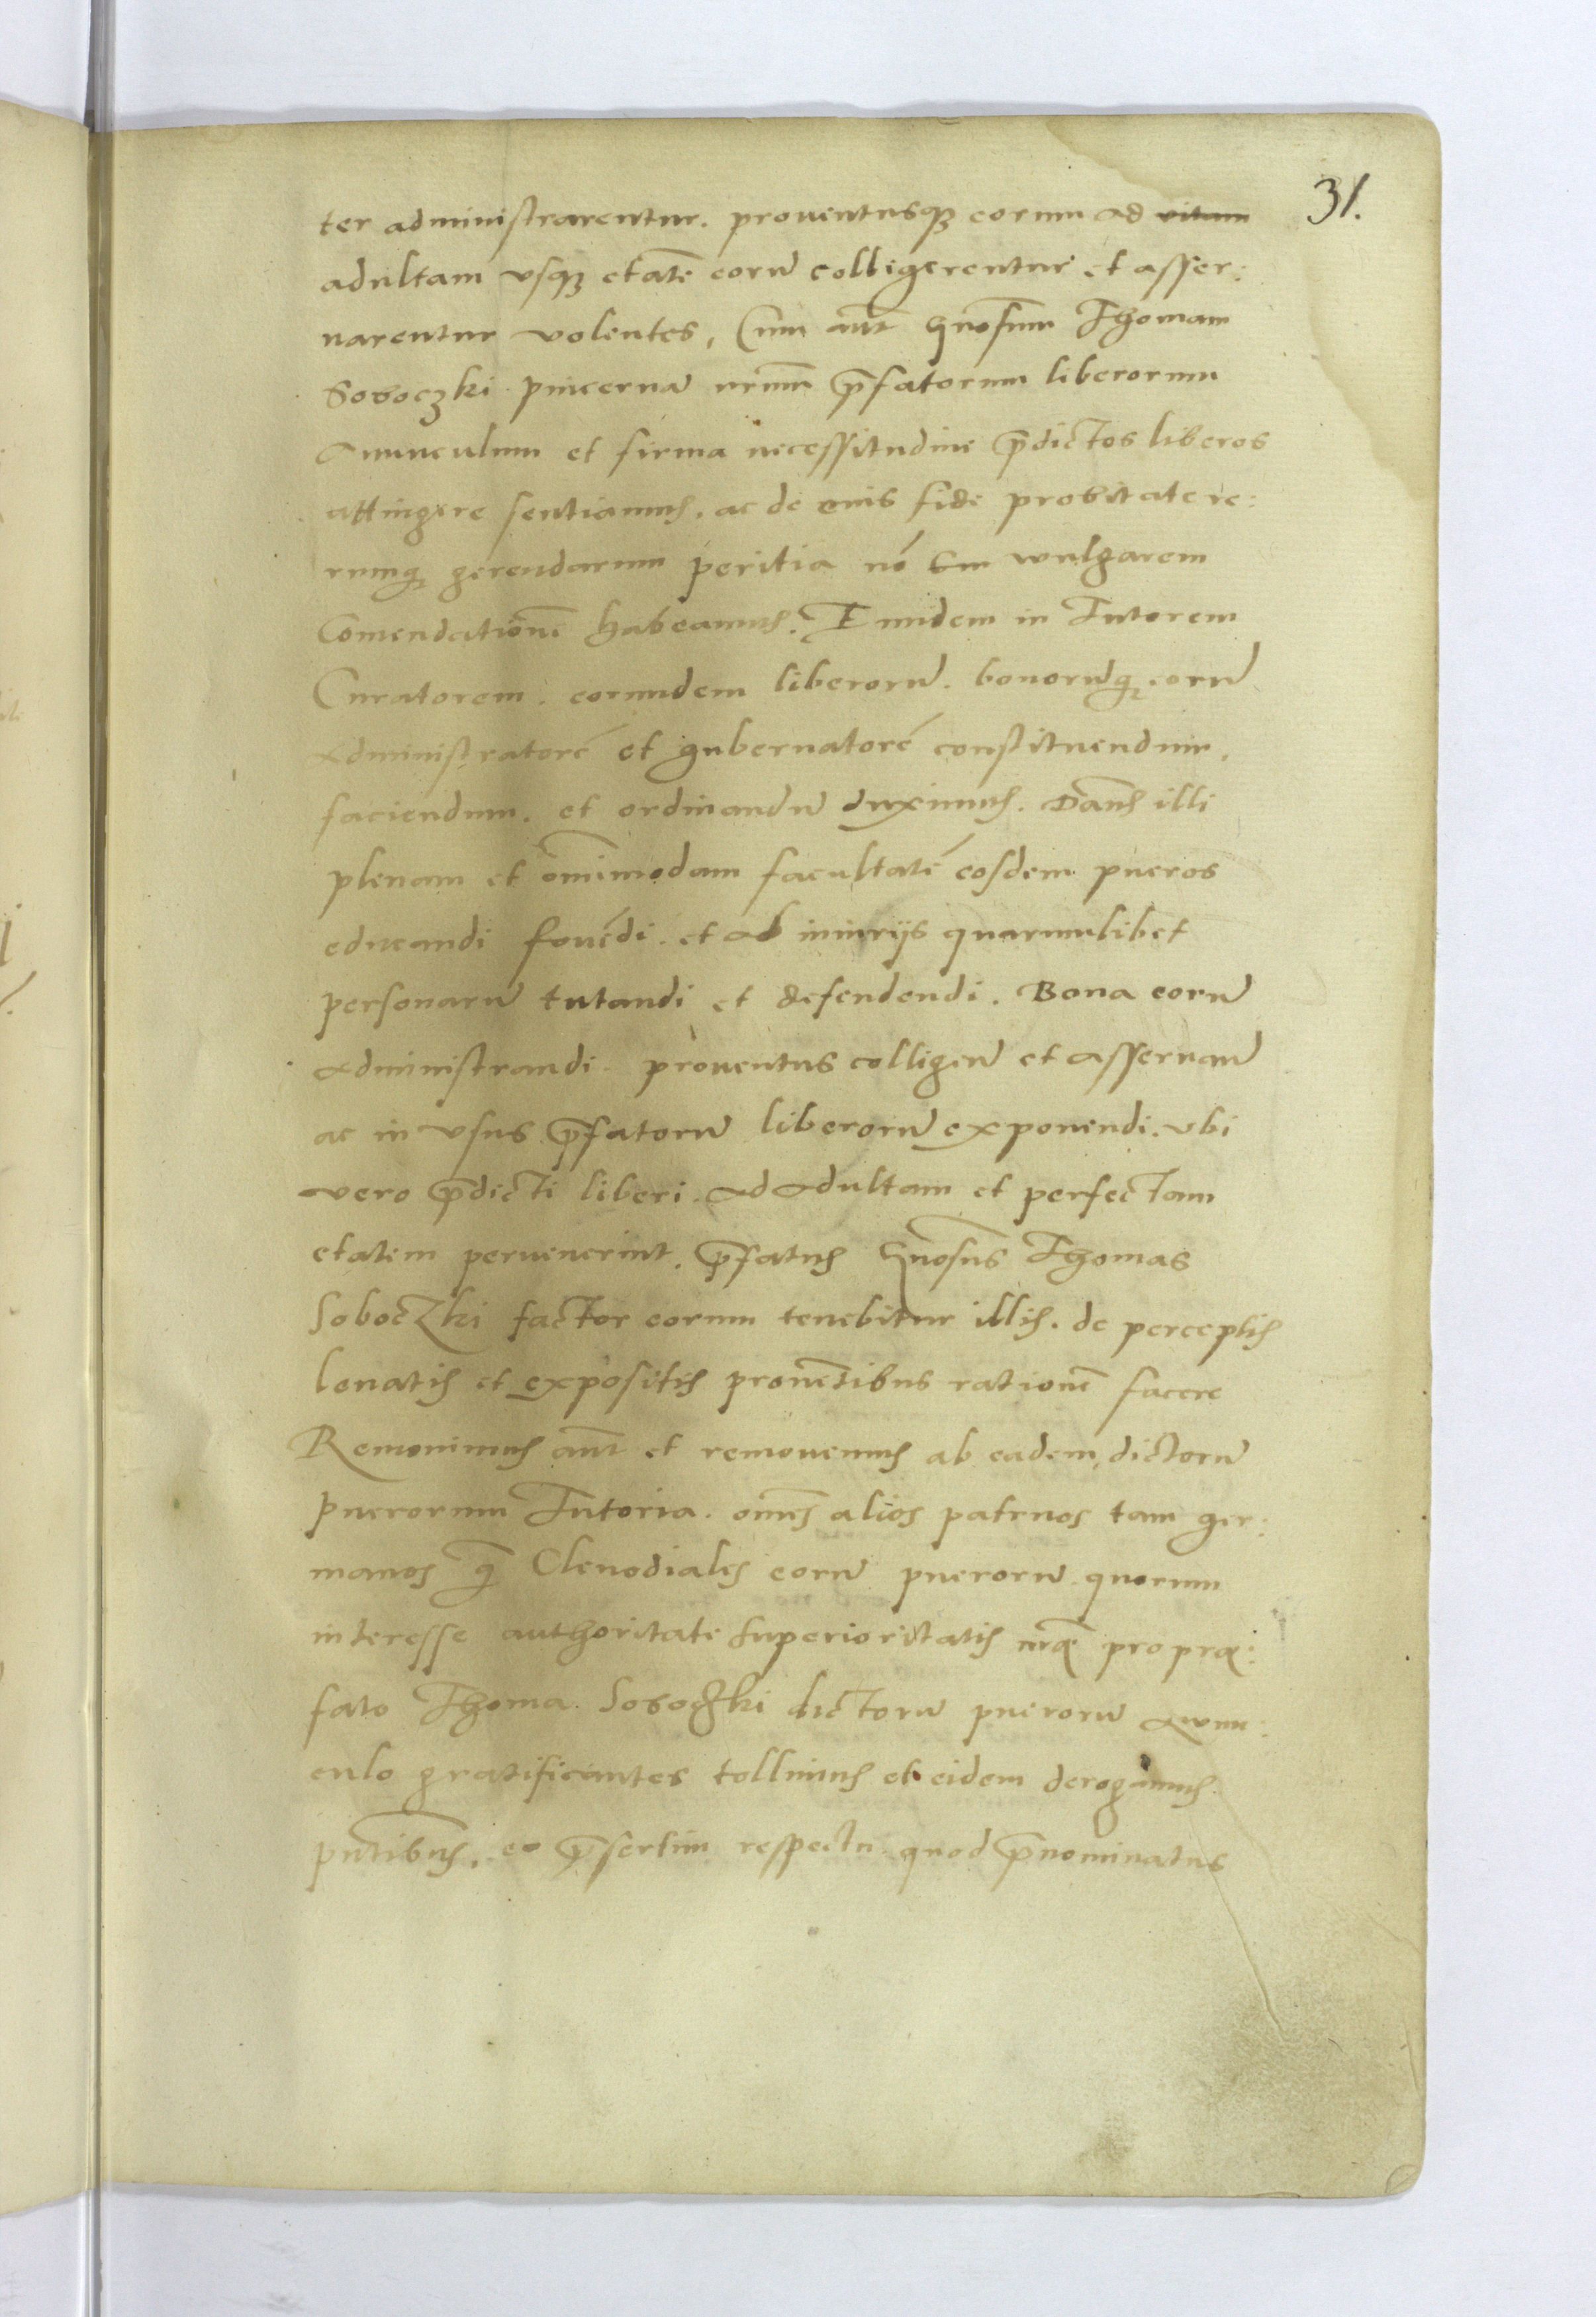 31.
ter administrarentur. prouentusq3 eorum ad vitam
adultam vsq3 etatē eorū colligerentur et asser:
uarentur volentes, Cum aūt Gnōsum Thomam
Soboczki pincernā nrūm p̄fatorum liberorum
Auunculum et firma necessitudine p̄dictos liberos
attingere sentiamus. ac de eius fide probitate re:
rumq3 gerendarum peritia nō vulgarem
Comendationē habeamus. Eundem in Tutorem
Curatorem. eorundem liberorū. bonorūq3 eorū
Administratorē et gubernatorē constituendum.
faciendum. et ordinandū duximus. Dantes illi
plenam et omīmodam facultatē eosdem pueros
educandi fouēdi. et ab iniurijs quarumlibet
personarū tutandi et defendendi. Bona eorū
administrandi. prouentus colligenđ et asseruanđ
ac in vsus p̄fatorū liberorū exponendi. vbi
vero p̄dicti liberi ad adultam et perfectam
etatem peruenerint, p̄fatus Gnōsus Thomas
Soboczki factor eorum tenebitur illis. de perceptis
leuatis et expositis prouētibus rationē facere
Remouimus aūt et remouemus ab eadem, dictorū
puerorum Tutoria. om̄es alios patruos tam ger:
manos q̄ Clenodiales eorū puerorū quorum
interesse authoritate superioritatis nrę pro prę:
fato Thoma Soboczki dictorū puerorū Auun:
culo gratificantes tollimus et eidem derogamus
pn̄tibus, eo p̄sertim respectu quod p̄nominatus